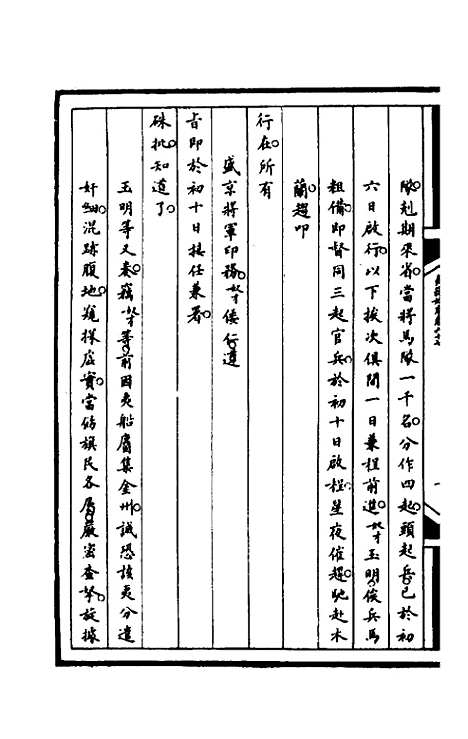 隊剋期來省當將馬隊一千名分作四起頭起兵已於初
六日啟行以下挨次俱間一日兼程前進奴才玉明俟兵馬
粗備即督同三起官兵於初十日啟程星夜催趲馳赴木
蘭趨叩
行在所有
盛京將軍印務奴才倭仁遵
旨即於初十日接任兼署
硃批知道了
玉明等又奏竊奴才等前因夷船屬集金州誠恐該夷分遣
奸細混跡腹地窺探虛實當飭旗民各屬嚴密查拏旋據